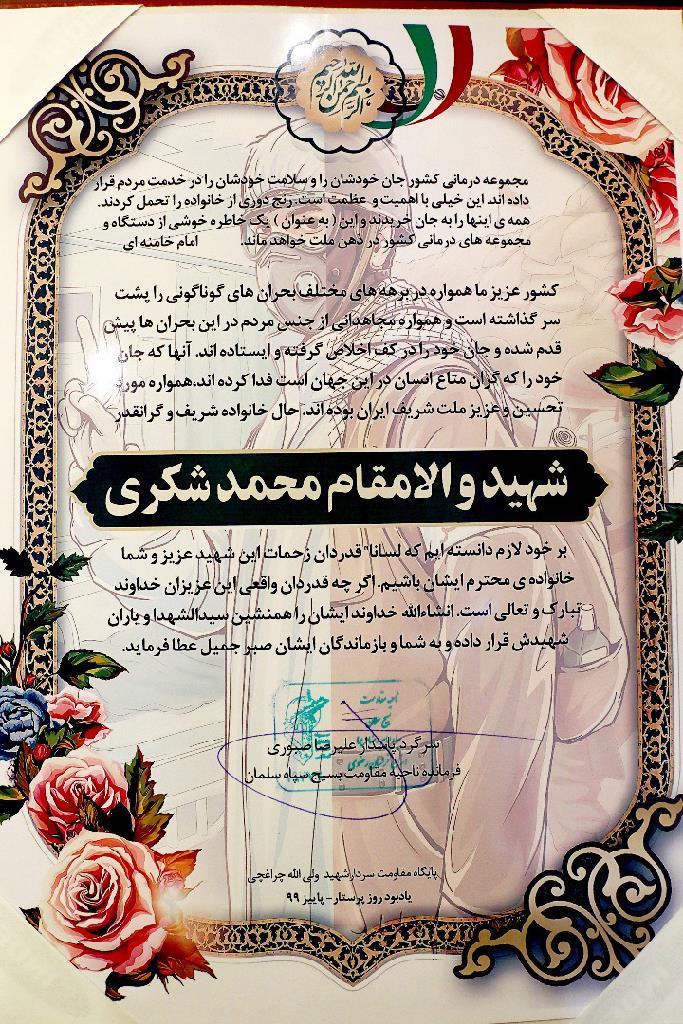 بسم الله الرحمن الرحیم
مجموعه درمانی کشور جان خودشان را و سلامت خودشان را در خدمت مردم قرار
داده اند. این خیلی با اهمیت و عظمت است. رنج دوری از خانواده را تحمل کردند.
همه ی اینها را به جان خریدند و این ( به عنوان ) یک خاطره خوشی از دستگاه و
مجموعه های درمانی کشور در ذهن ملت خواهد ماند. امام خامنه ای
کشور عزیز ما همواره در برهه های مختلف بحران های گوناگونی را پشت
سر گذاشته است و همواره مجاهدانی از جنس مردم در این بحران ها پیش
قدم شده و جان خود را در کف اخلاص گرفته و ایستاده اند. آنها که جان
خود را که گران متاع انسان در این جهان است فدا کرده اند.همواره مورد
تحسین و عزیز ملت شریف ایران بوده اند. حال خانواده شریف و گرانقدر
شهید والامقام محمد شکری
بر خود لازم دانسته ایم که لسانا" قدردان زحمات این شهید عزیز و شما
خانواده ی محترم ایشان باشیم. اگر چه قدردان واقعی این عزیزان خداوند
تبارک و تعالی است. انشاءالله خداوند ایشان را همنشین سیدالشهدا و یاران
شهیدش قرار داده و به شما و بازماندگان ایشان صبر جمیل عطا فرماید.
سرگرد پاسدار علیرضا صبوری
فرمانده ناحیه مقاومت بسیج سپاه سلمان
پایگاه مقاومت سردار شهید ولی الله چراغچی
یادبود روز پرستار - پاییز ۹۹